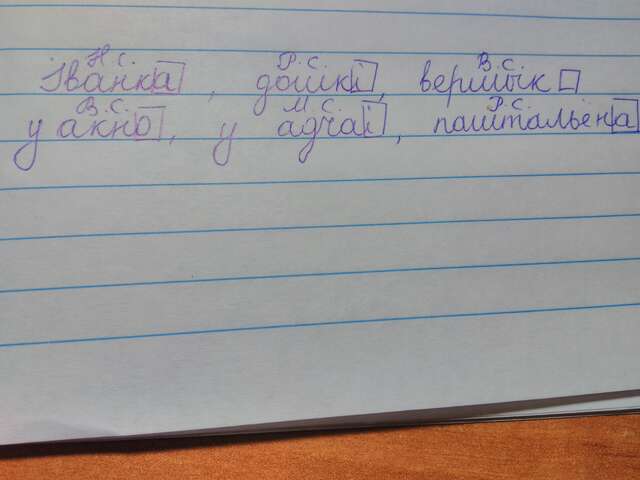 Н. С. Р. С. В. С.
Іванка, дошкі, вермшык
В. С. М. С. Р. С.
у акно, у адчаі, паштальёна